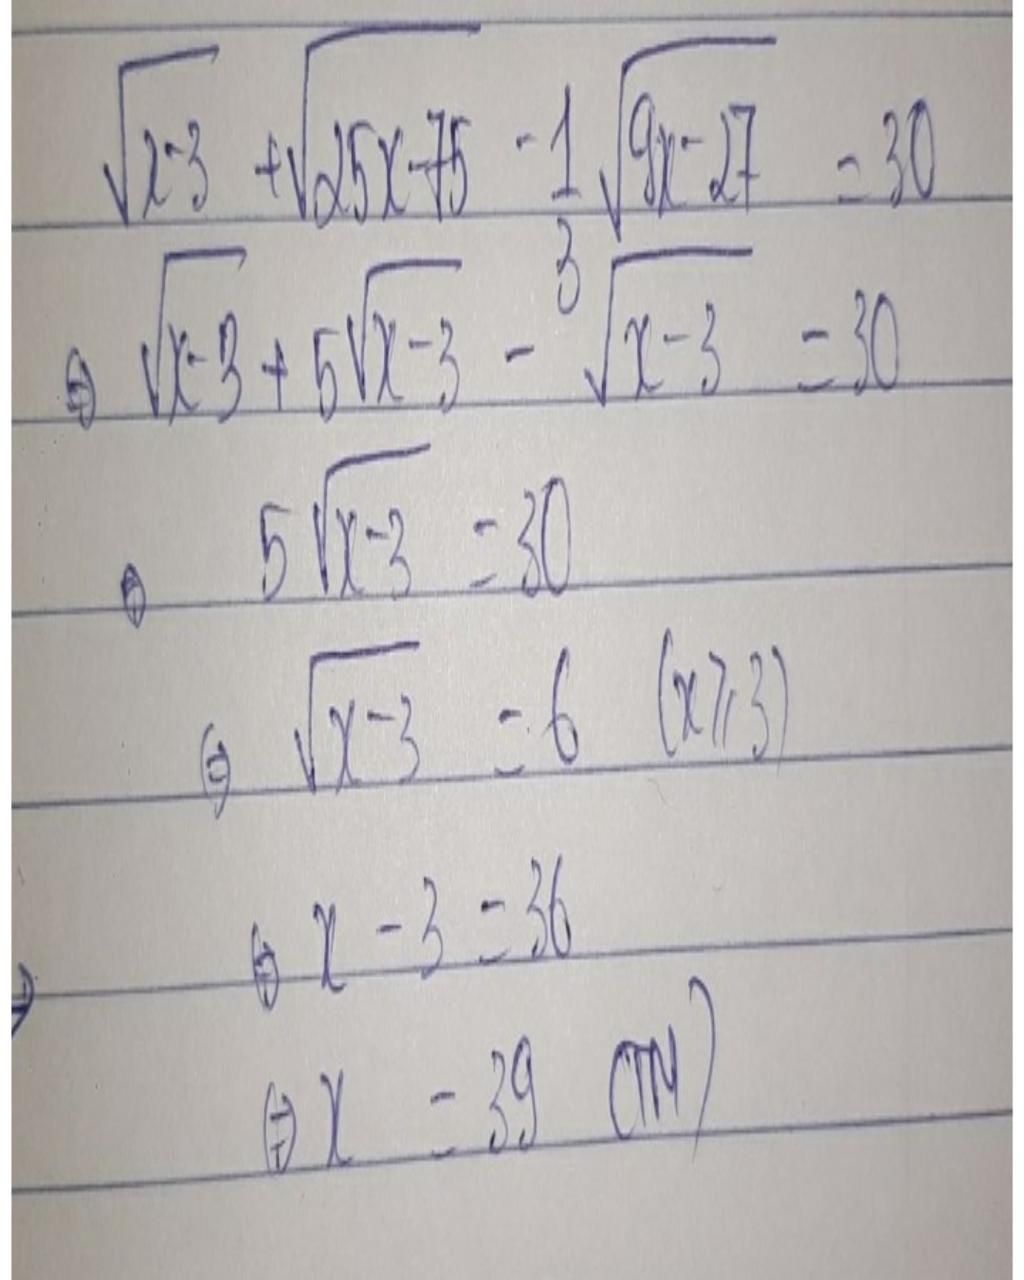 √(x-3) + √(25x-75) - 1/3 √(9x-27) = 30
⇔ √(x-3) + 5√(x-3) - √(x-3) = 30
⇔ 5√(x-3) = 30
⇔ √(x-3) = 6 (x ⩾ 3)
⇔ x - 3 = 36
⇔ x = 39 (TM)